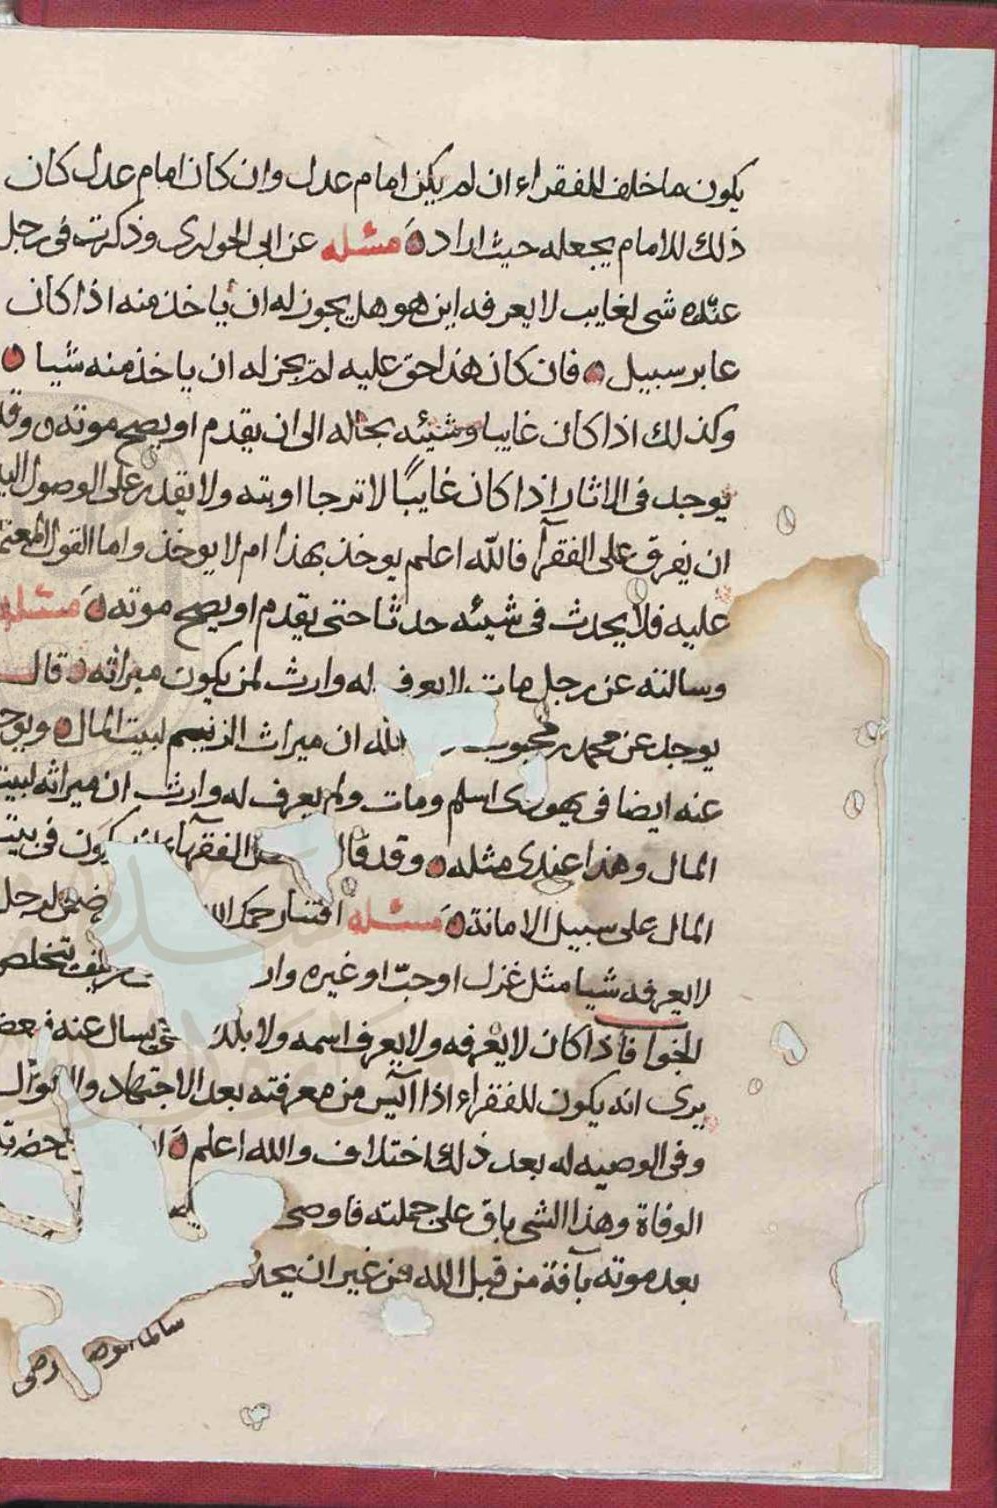 يكون ما خلف للفقراء ان لم يكن امام عدل وان كان امام عدل كان
ذلك للامام يجعله حيث اراد مسئله عن ابى الحوارى وذكرت فى رجل
عنده شى لغايب لا يعرفه اين هو هل يجوز له ان ياخذ منه اذا كان
عابر سبيل فان كان هذا حق عليه لم يجز له ان ياخذ منه شيا
وكذلك اذا كان غايبا وشيئه بحاله الى ان يقدم او يصح موته وقد
يوجد فى الاثار اذا كان غايبًا لا ترجا اوبته ولا يقدر على الوصول اليه
ان يفرق على الفقرآ فالله اعلم يوخذ بهذا ام لا يوخذ واما القول
عليه فلا يحدث فى شيئه حدثا حتى يقدم او يصح موته مسئله
وسالته عن رجل مات لا يعرف له وارث لمن يكون ميراثه قال
يوجد عن محمد بن محبوب الله ان ميراث لبيت المال
عنه ايضا فى يهودى اسلم ومات ولم يعرف له وارث ان ميراثه لبيت
المال وهذا عندى مثله وقد قال الفقهآء يكون فى بيت
المال على سبيل الامانة مسئله رحمك الله ضمن لرجل
لا يعرفه شيا مثل غزل او حبّ او غيره
الجواب فاذا كان لا يعرفه ولا يعرف اسمه ولا بلد يسال عنه
يرى انه يكون للفقراء اذا آئس من معرفته بعد الاجتهاد
وفى الوصيه له بعد ذلك اختلاف والله اعلم حضرته
الوفاة وهذا الشى باق على جملته فاوصى
بعد موته بآفة من قبل الله من غير ان